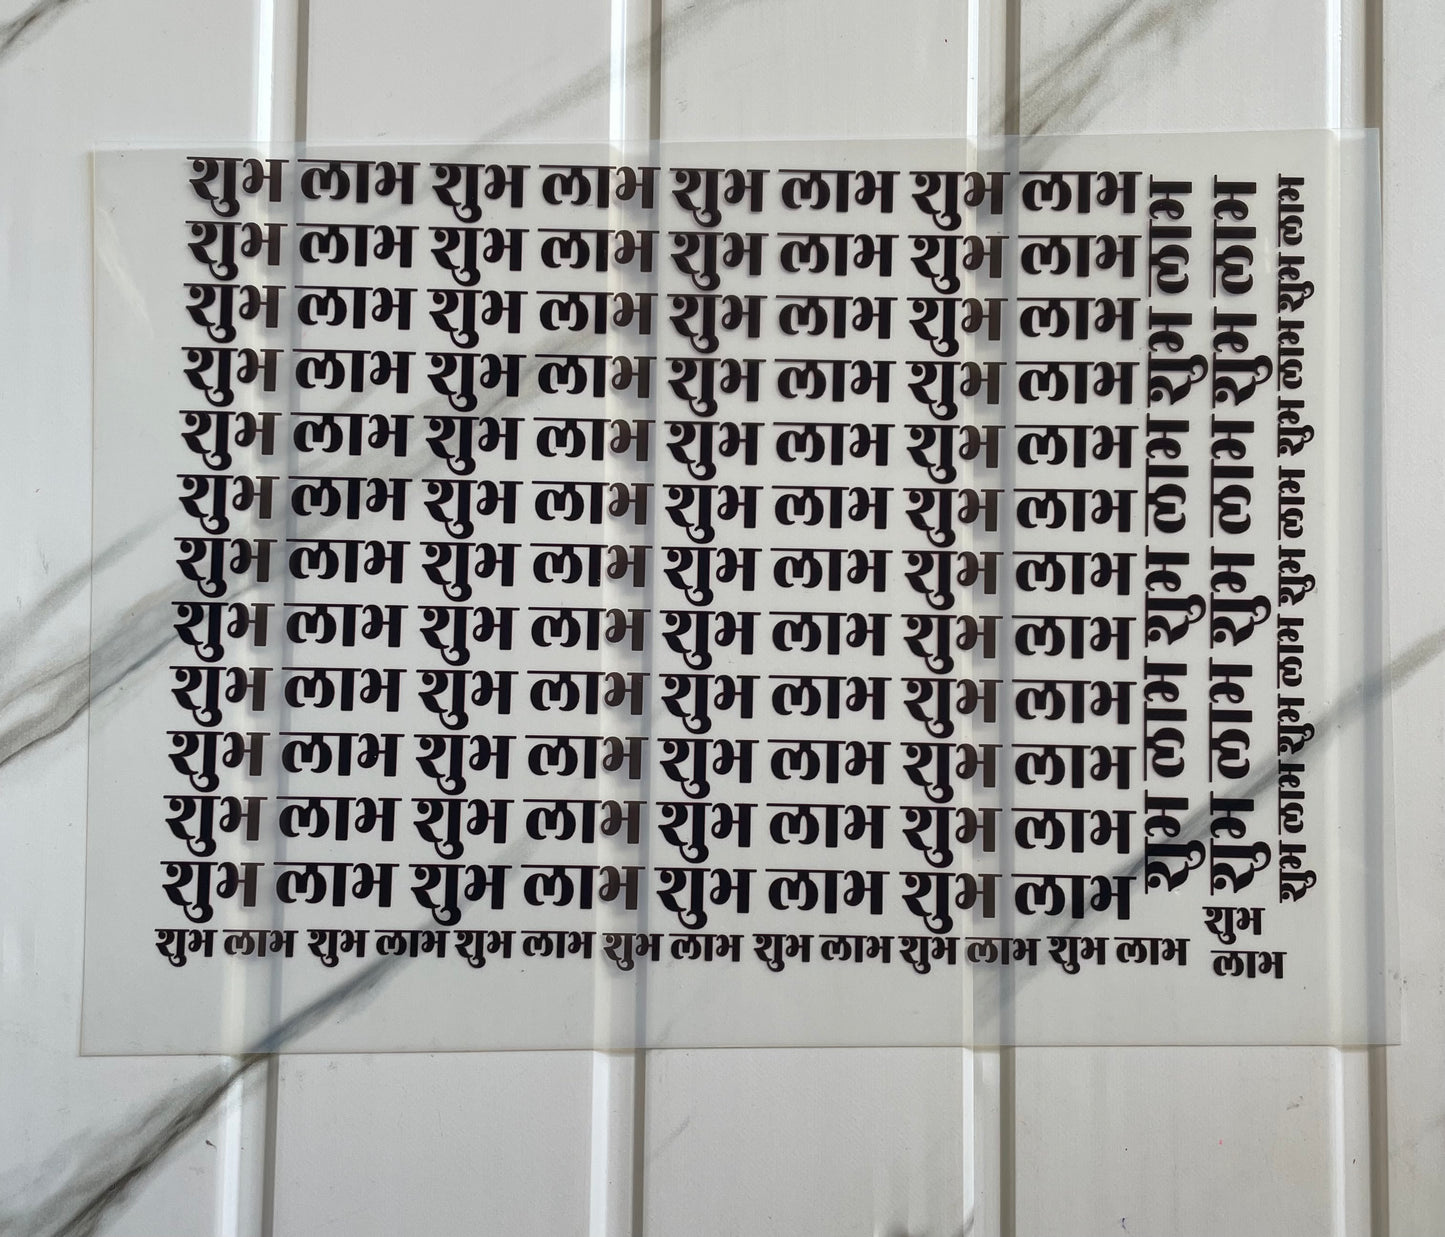 शुभ लाभ शुभ लाभ शुभ लाभ शुभ लाभ
शुभ लाभ शुभ लाभ शुभ लाभ शुभ लाभ
शुभ लाभ शुभ लाभ शुभ लाभ शुभ लाभ
शुभ लाभ शुभ लाभ शुभ लाभ शुभ लाभ
शुभ लाभ शुभ लाभ शुभ लाभ शुभ लाभ
शुभ लाभ शुभ लाभ शुभ लाभ शुभ लाभ
शुभ लाभ शुभ लाभ शुभ लाभ शुभ लाभ
शुभ लाभ शुभ लाभ शुभ लाभ शुभ लाभ
शुभ लाभ शुभ लाभ शुभ लाभ शुभ लाभ
शुभ लाभ शुभ लाभ शुभ लाभ शुभ लाभ
शुभ लाभ शुभ लाभ शुभ लाभ शुभ लाभ
शुभ लाभ शुभ लाभ शुभ लाभ शुभ लाभ
शुभ लाभ शुभ लाभ शुभ लाभ शुभ लाभ शुभ लाभ शुभ लाभ शुभ लाभ
शुभ लाभ शुभ लाभ शुभ लाभ
शुभ लाभ शुभ लाभ शुभ लाभ
शुभ लाभ शुभ लाभ शुभ लाभ शुभ लाभ शुभ लाभ
शुभ
लाभ